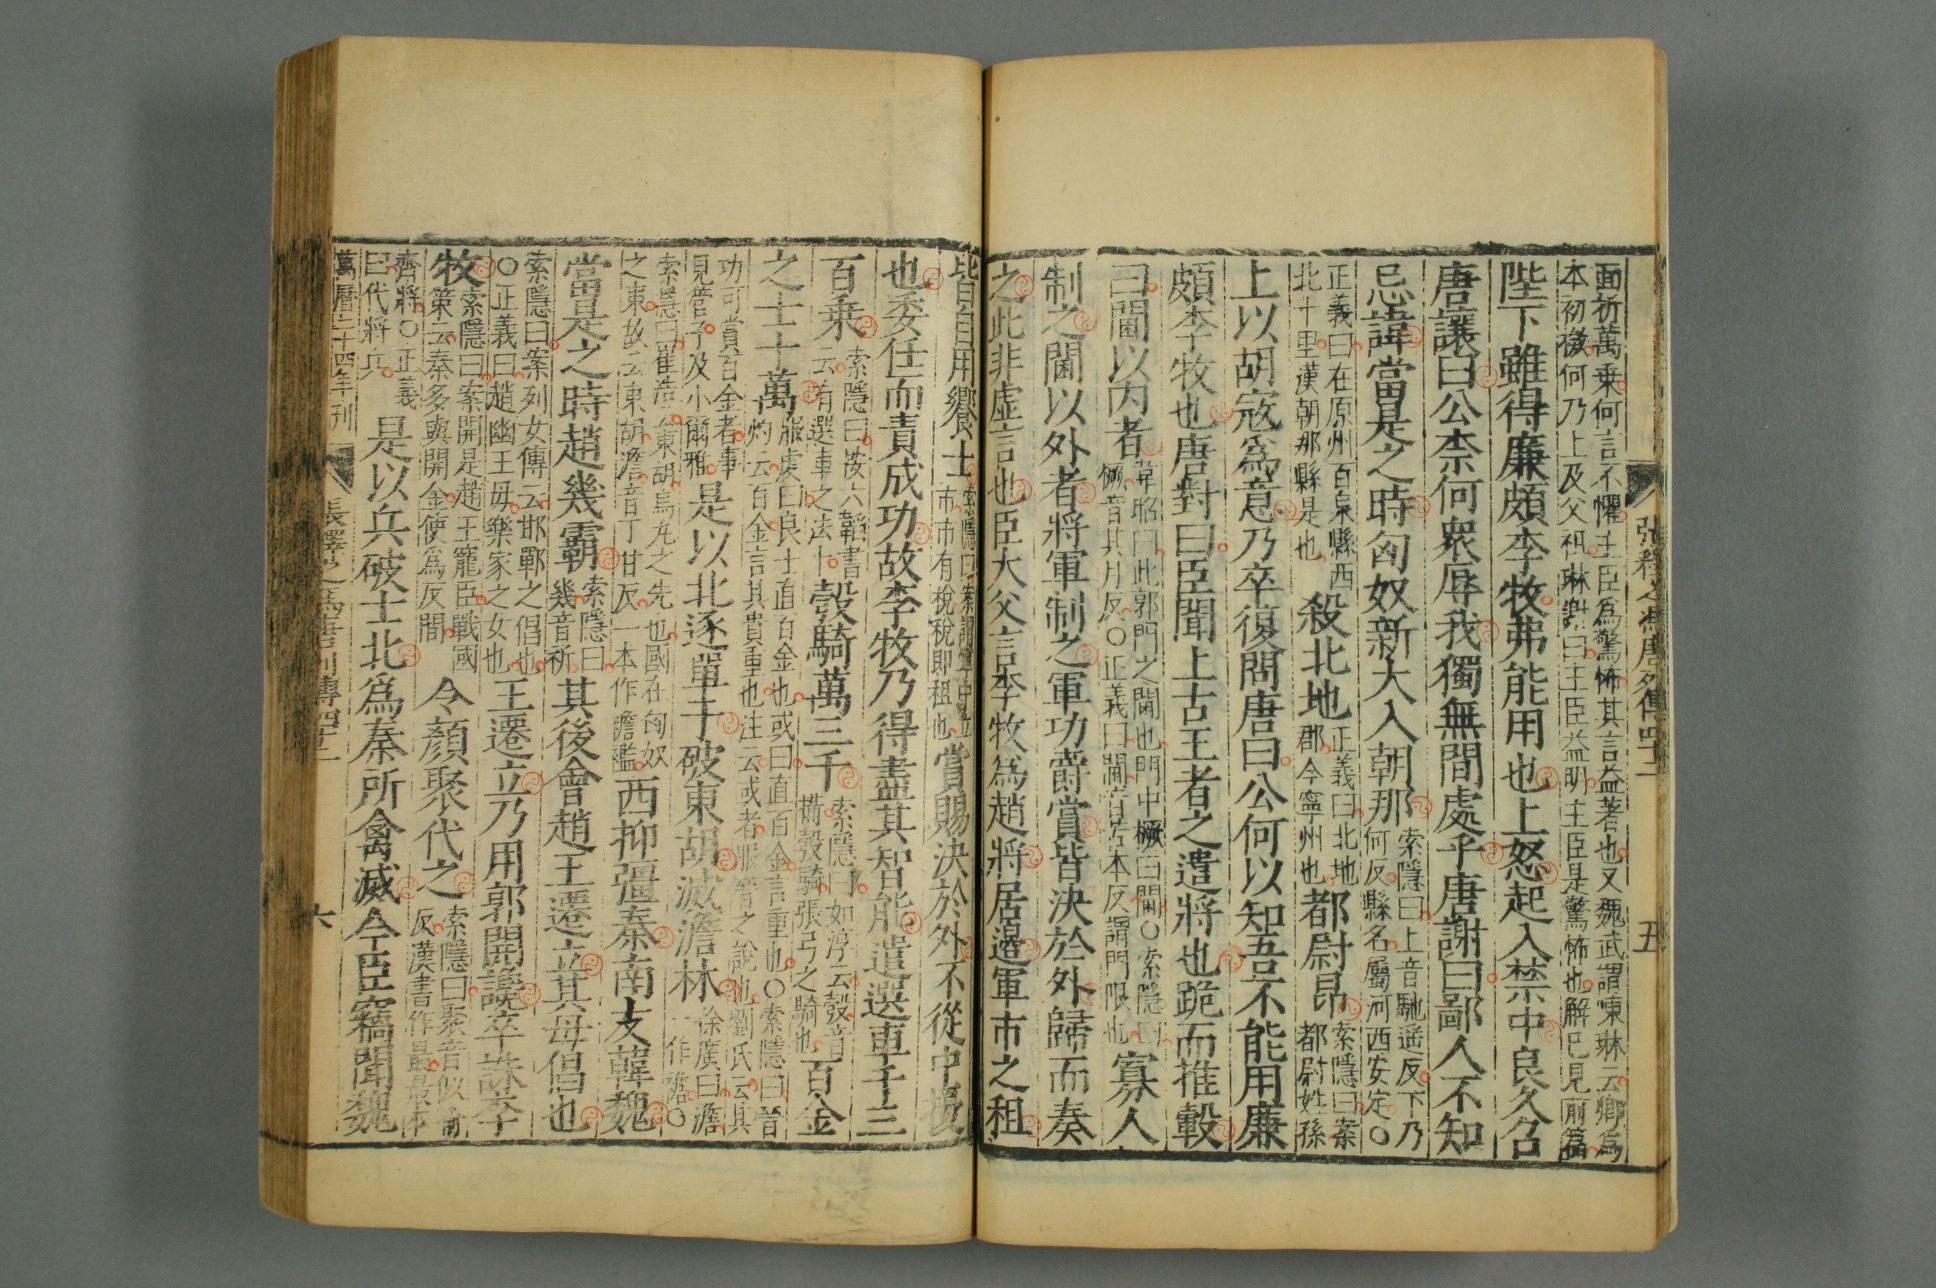 張釋之馮唐列傳四十二 五
面折萬乗何言不懼主臣爲驚怖其言益著也又魏武謂陳琳云卿爲
本初檄何乃上及父祖琳謝曰主臣益明主臣是驚怖也解已見前篇
陛下雖得廉頗李牧弗能用也上怒起入禁中良久召
唐讓曰公柰何衆辱我獨無間處乎唐謝曰鄙人不知
忌諱當是之時匈奴新大入朝那索隱曰上音馳遥反下乃何反縣名屬河西安定○
正義曰在原州百泉縣西北十里漢朝那縣是也殺北地郡正義曰北地郡今寧州也都尉卬索隱曰案都尉姓孫
上以胡寇爲意乃卒復問唐曰公何以知吾不能用廉
頗李牧也唐對曰臣聞上古王者之遣將也跪而推轂
曰閫以内者韋昭曰此郭門之閫也門中橛曰閫○索隱曰橛音其月反○正義曰閫音苦本反謂門限也寡人
制之閫以外者將軍制之軍功爵賞皆決於外歸而奏
之此非虛言也臣大父言李牧爲趙將居邊軍市之租
皆自用饗士索隱曰案謂軍中立市市有稅稅即租也賞賜決於外不從中擾
也委任而責成功故李牧乃得盡其智能遣選車千三
百乗索隱曰按六韜書云有選車之法十彀騎萬三千索隱曰如淳云彀音搆彀騎張弓之騎也百金
之士十萬服虔曰良士直百金也或曰直百金言重也○索隱曰晉灼云百金言其貴重也注云或者服晉之說也劉氏云其
功可賞百金者事見管子及小爾雅是以北逐單于破東胡滅澹林徐廣曰澹一作襜○
索隱曰崔浩云東胡烏丸之先也國在匈奴之東故云東胡澹音丁甘反一本作襜襤西抑彊秦南支韓魏
當是之時趙幾霸索隱曰幾音祈其後會趙王遷立其母倡也
索隱曰案列女傳云邯鄲之倡也○正義曰趙幽王母樂家之女也王遷立乃用郭開讒卒誅李
牧索隱曰案開是趙王寵臣戰國策云秦多與開金使爲反間令顏聚代之索隱曰聚音似喻反漢書作最最本
齊將○正義曰代將兵是以兵破士北爲秦所禽滅今臣竊聞魏
萬曆二十四年刊 張釋之馮唐列傳四十二 六